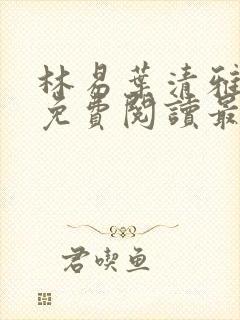 林易葉清雅
免費閱讀最
君喫魚